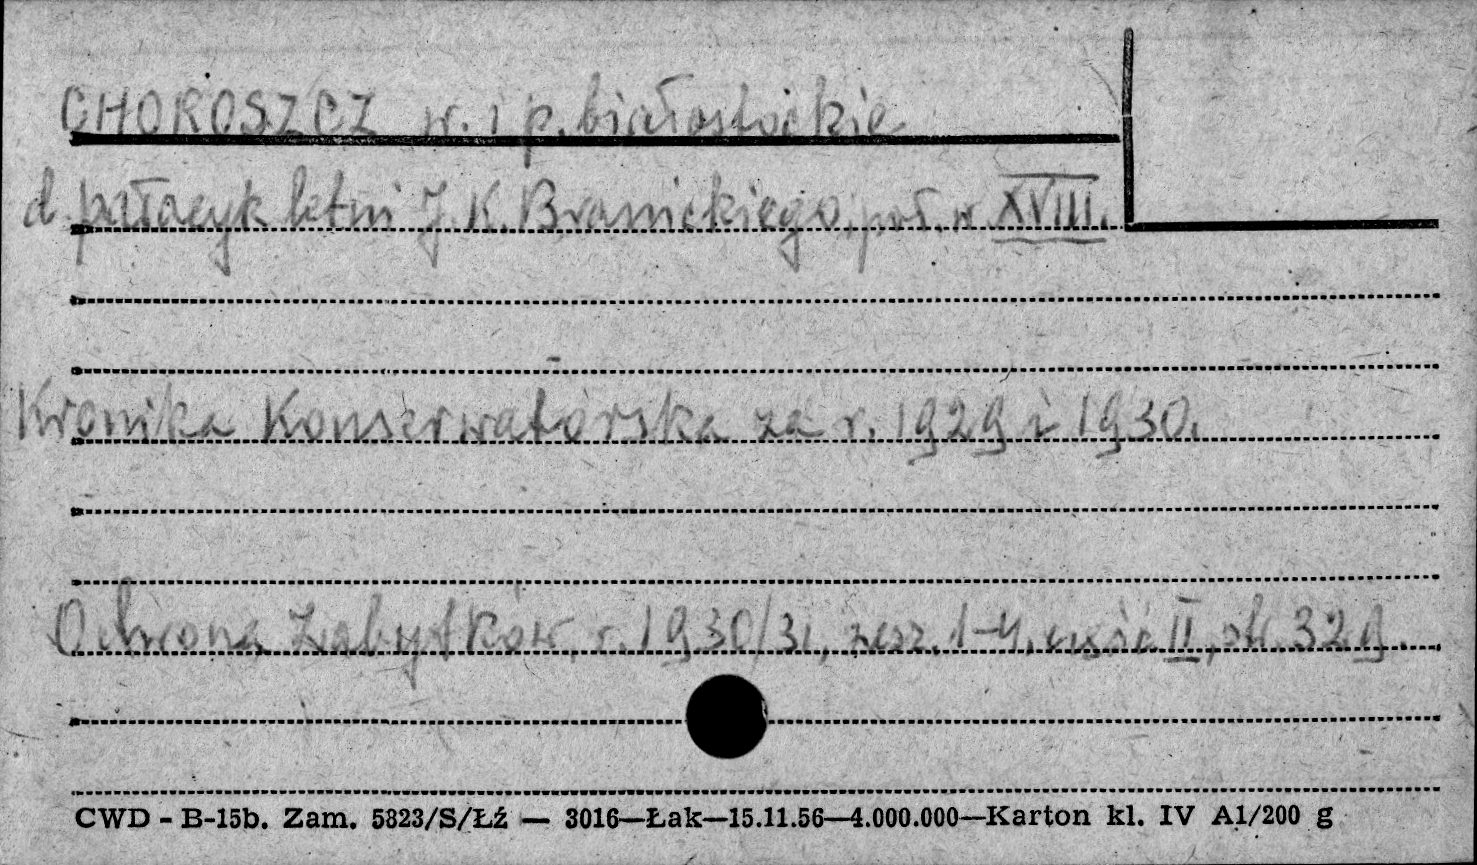 CHOROSZCZ w. i p. białostockie
d. pałacyk letni J. K. Branickiego, poł. w XVIII.
Kronika Konserwatorska za r. 1929 i 1930.
Ochrona Zabytków, r. 1930/31, zesz. 1-4, część II, str. 329.
CWD - B-15b. Zam. 5823/S/Łź — 3016—Łak—15.11.56—4.000.000—Karton kl. IV A1/200 g